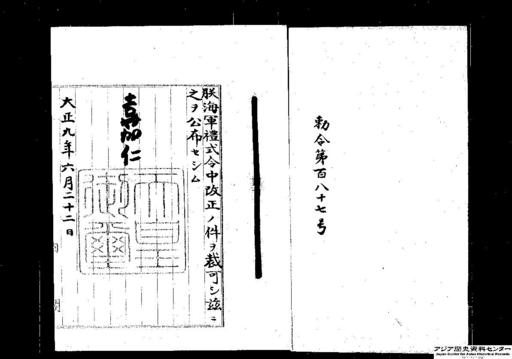 勅令第百八十七号
朕海軍禮式令中改正ノ件ヲ裁可シ茲ニ
之ヲ公布セシム
嘉仁
天皇
御璽
大正九年六月二十二日
アジア歴史資料センター
Japan Center for Asian Historical Records